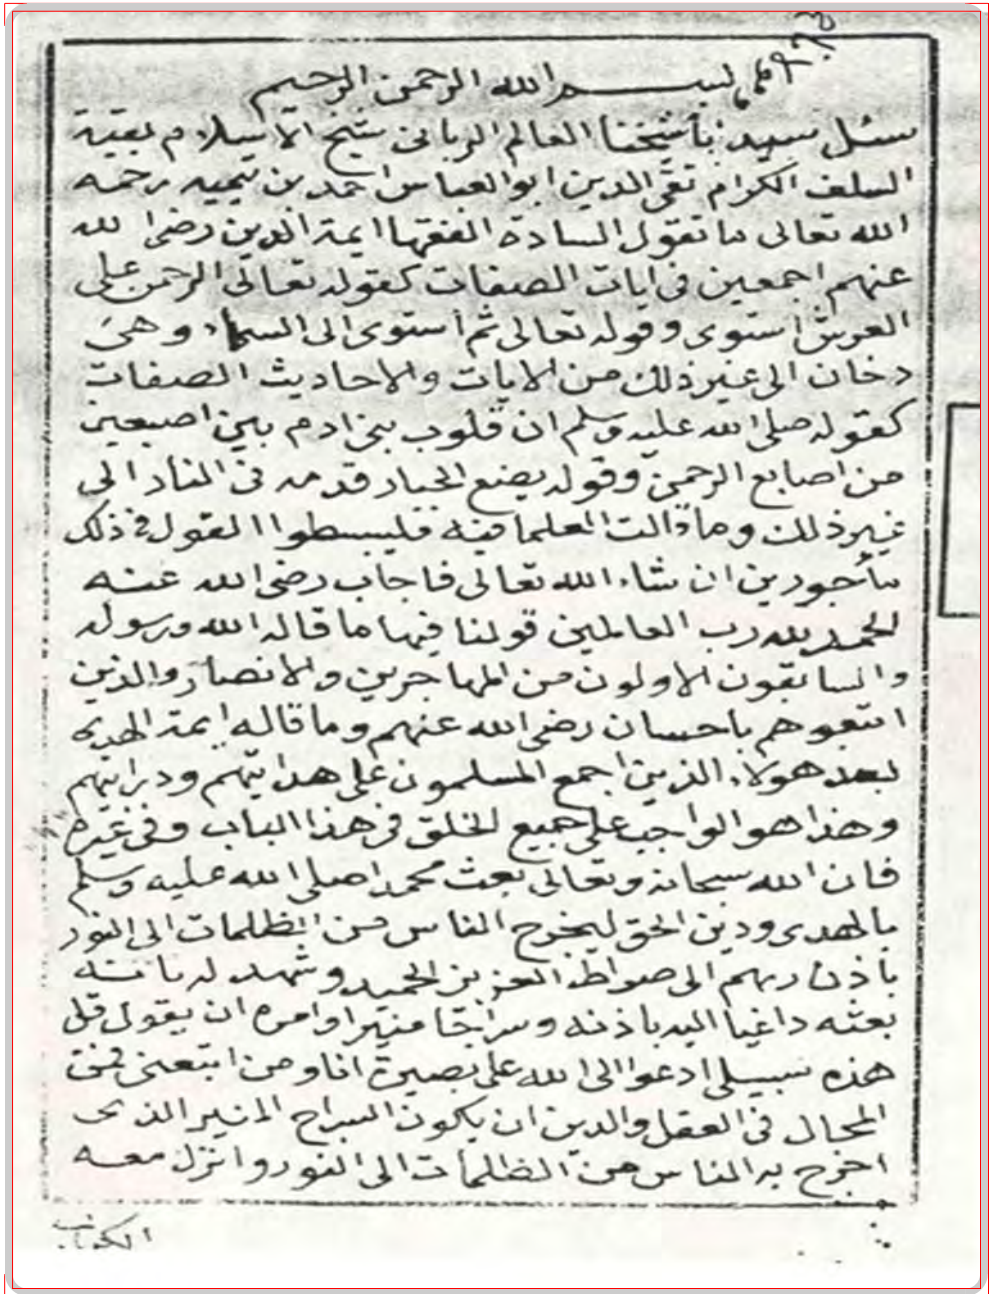 بسم الله الرحمن الرحيم
سئل سيدنا شيخنا العالم الرباني شيخ الاسلام بقية
السلف الكرام تقي الدين ابو العباس احمد بن تيميه رحمه
الله تعالى ما تقول السادة الفقها ايمة الدين رضى الله
عنهم اجمعين في ايات الصفات كقوله تعالى الرحمن على
العرش استوى وقوله تعالى ثم استوى الى السماء وهي
دخان الى غير ذلك من الايات والاحاديث الصفات
كقوله صلى الله عليه وسلم ان قلوب بني ادم بين اصبعين
من اصابع الرحمن وقوله يضع الجبار قدمه في النار الى
غير ذلك وما قالت العلما فيه فليبسطوا القول في ذلك
مأجورين ان شاء الله تعالى فاجاب رضى الله عنه
الحمد لله رب العالمين قولنا فيها ما قاله الله ورسوله
والسابقون الاولون من المهاجرين والانصار والذين
اتبعوهم باحسان رضى الله عنهم وما قاله ايمة الهدى
بعد هولاء الذين اجمع المسلمون على هدايتهم ودرايتهم
وهذا هو الواجب على جميع الخلق في هذا الباب وفي غيره
فان الله سبحانه وتعالى بعث محمدا صلى الله عليه وسلم
بالهدى ودين الحق ليخرج الناس من الظلمات الى النور
باذن ربهم الى صراط العزيز الحميد وشهد له بانه
بعثه داعيا اليه باذنه وسراجا منيرا وامره ان يقول قل
هذه سبيلي ادعوا الى الله على بصيرة انا ومن اتبعني فمن
المحال في العقل والدين ان يكون السراج المنير الذى
اخرج به الناس من الظلمات الى النور وانزل معه
الكتاب